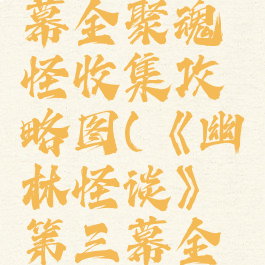 幕全聚魂
怪收集攻
略图(《幽
林怪谈》
第三幕全